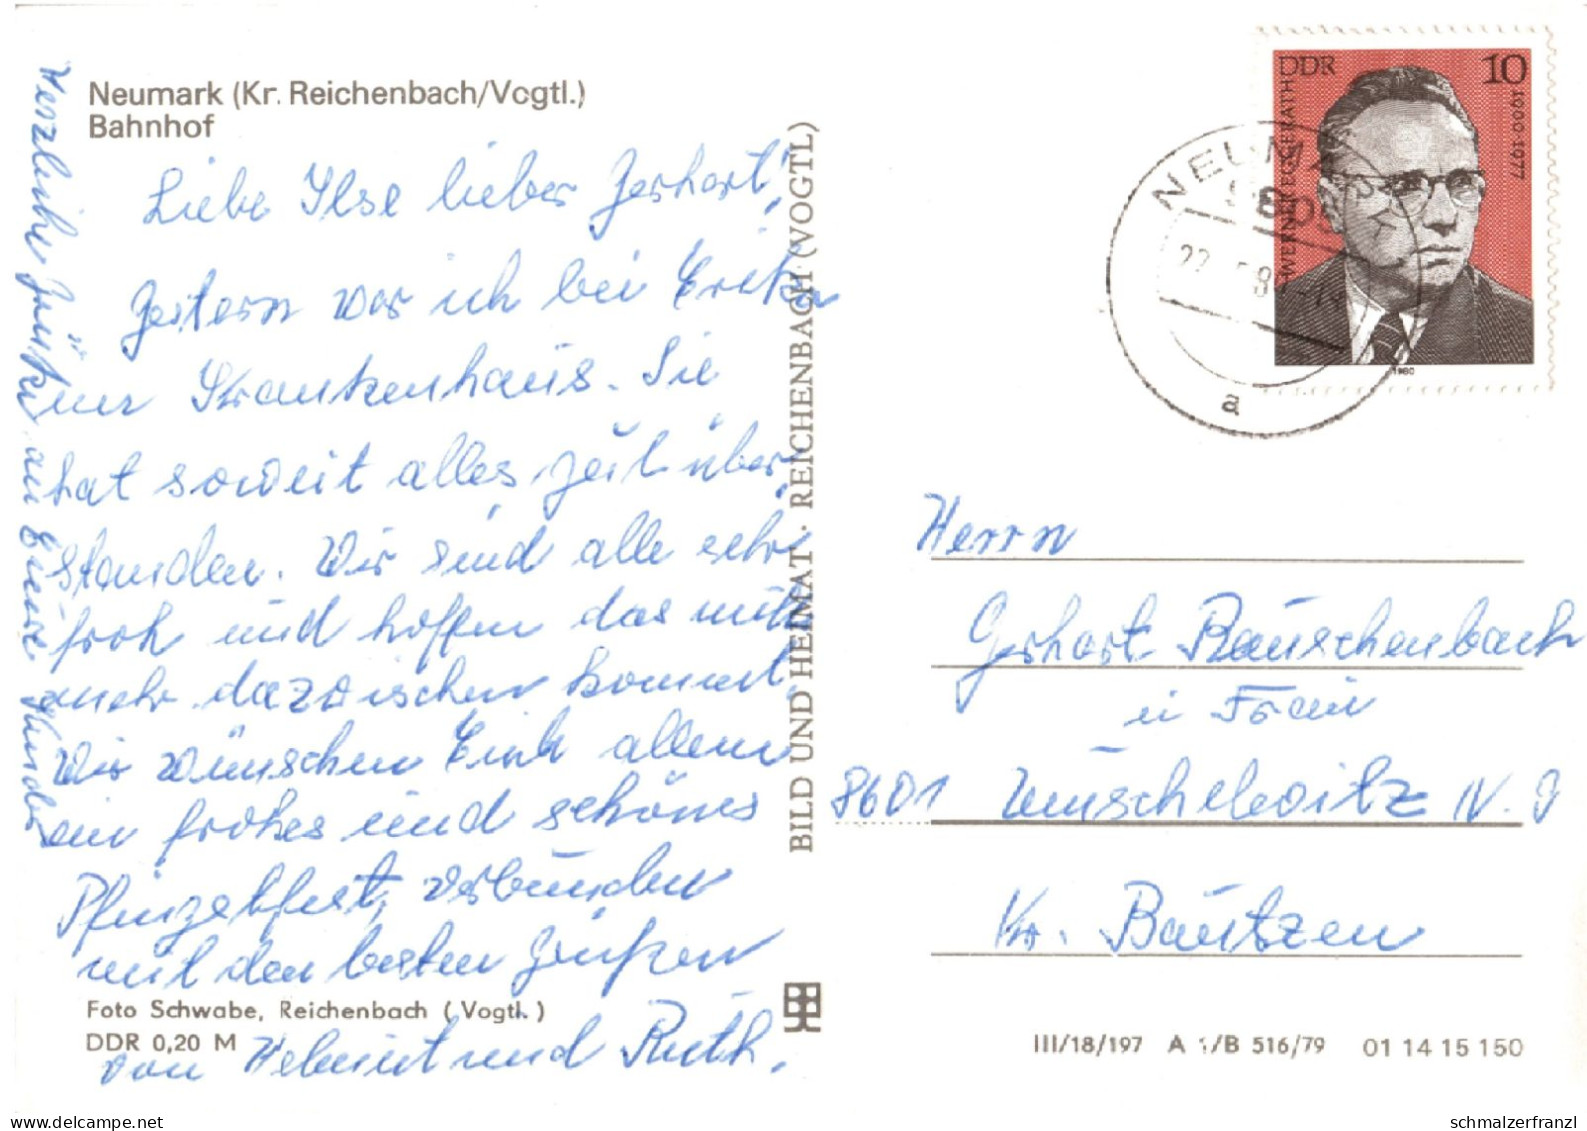 Neumark (Kr. Reichenbach/Vogtl.)
Bahnhof
Liebe Ilse lieber Gerhart!
Gestern war ich bei Erika
im Krankenhaus. Sie
hat soweit alles gut über
standen. Wir sind alle sehr
froh und hoffen das nichts
mehr dazwischen kommt.
Wir wünschen Euch allem
ein frohes und schönes
Pfingstfest, verbunden
mit den besten Grüßen
von Helmut und Ruth.
Herzliche Grüße an Eure Kinder
Foto Schwabe, Reichenbach (Vogtl.)
DDR 0,20 M
BILD UND HEIMAT · REICHENBACH (VOGTL)
DDR 10
WERNER EGGERATH
1900-1977
1980
NEUMARK
9805
22. 8
a
Herrn
Gerhart Rauschenbach
u Frau
8601 Wuschelwitz N. 9
Kr. Bautzen
III/18/197 A 1/B 516/79 01 14 15 150
Hinweis: Urheberrecht / Copyright
schmalzerfranzl